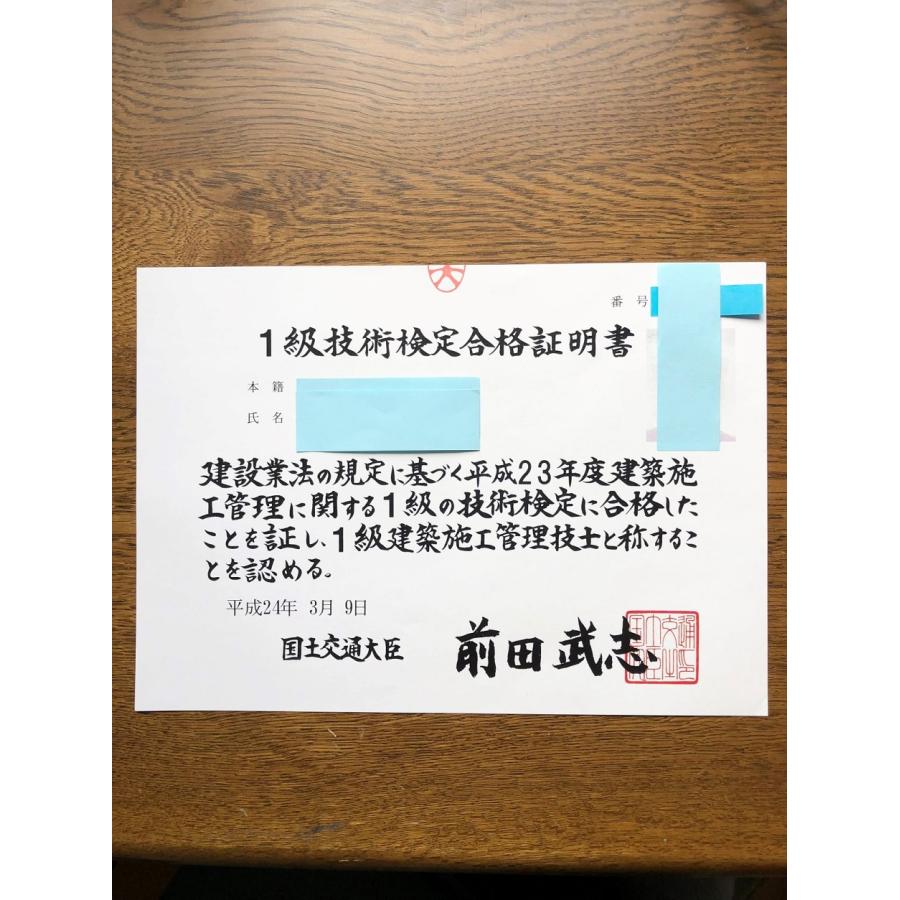 番 号
1級技術検定合格証明書
本 籍
氏 名
建設業法の規定に基づく平成23年度建築施
工管理に関する1級の技術検定に合格した
ことを証し、1級建築施工管理技士と称するこ
とを認める。
平成24年 3月 9日
国土交通大臣 前田武志